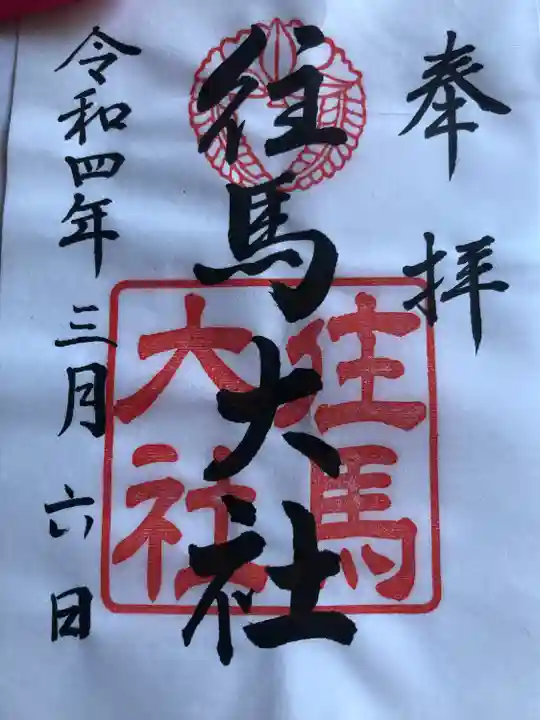 奉拝
往馬大社
往馬
大社
令和四年三月六日